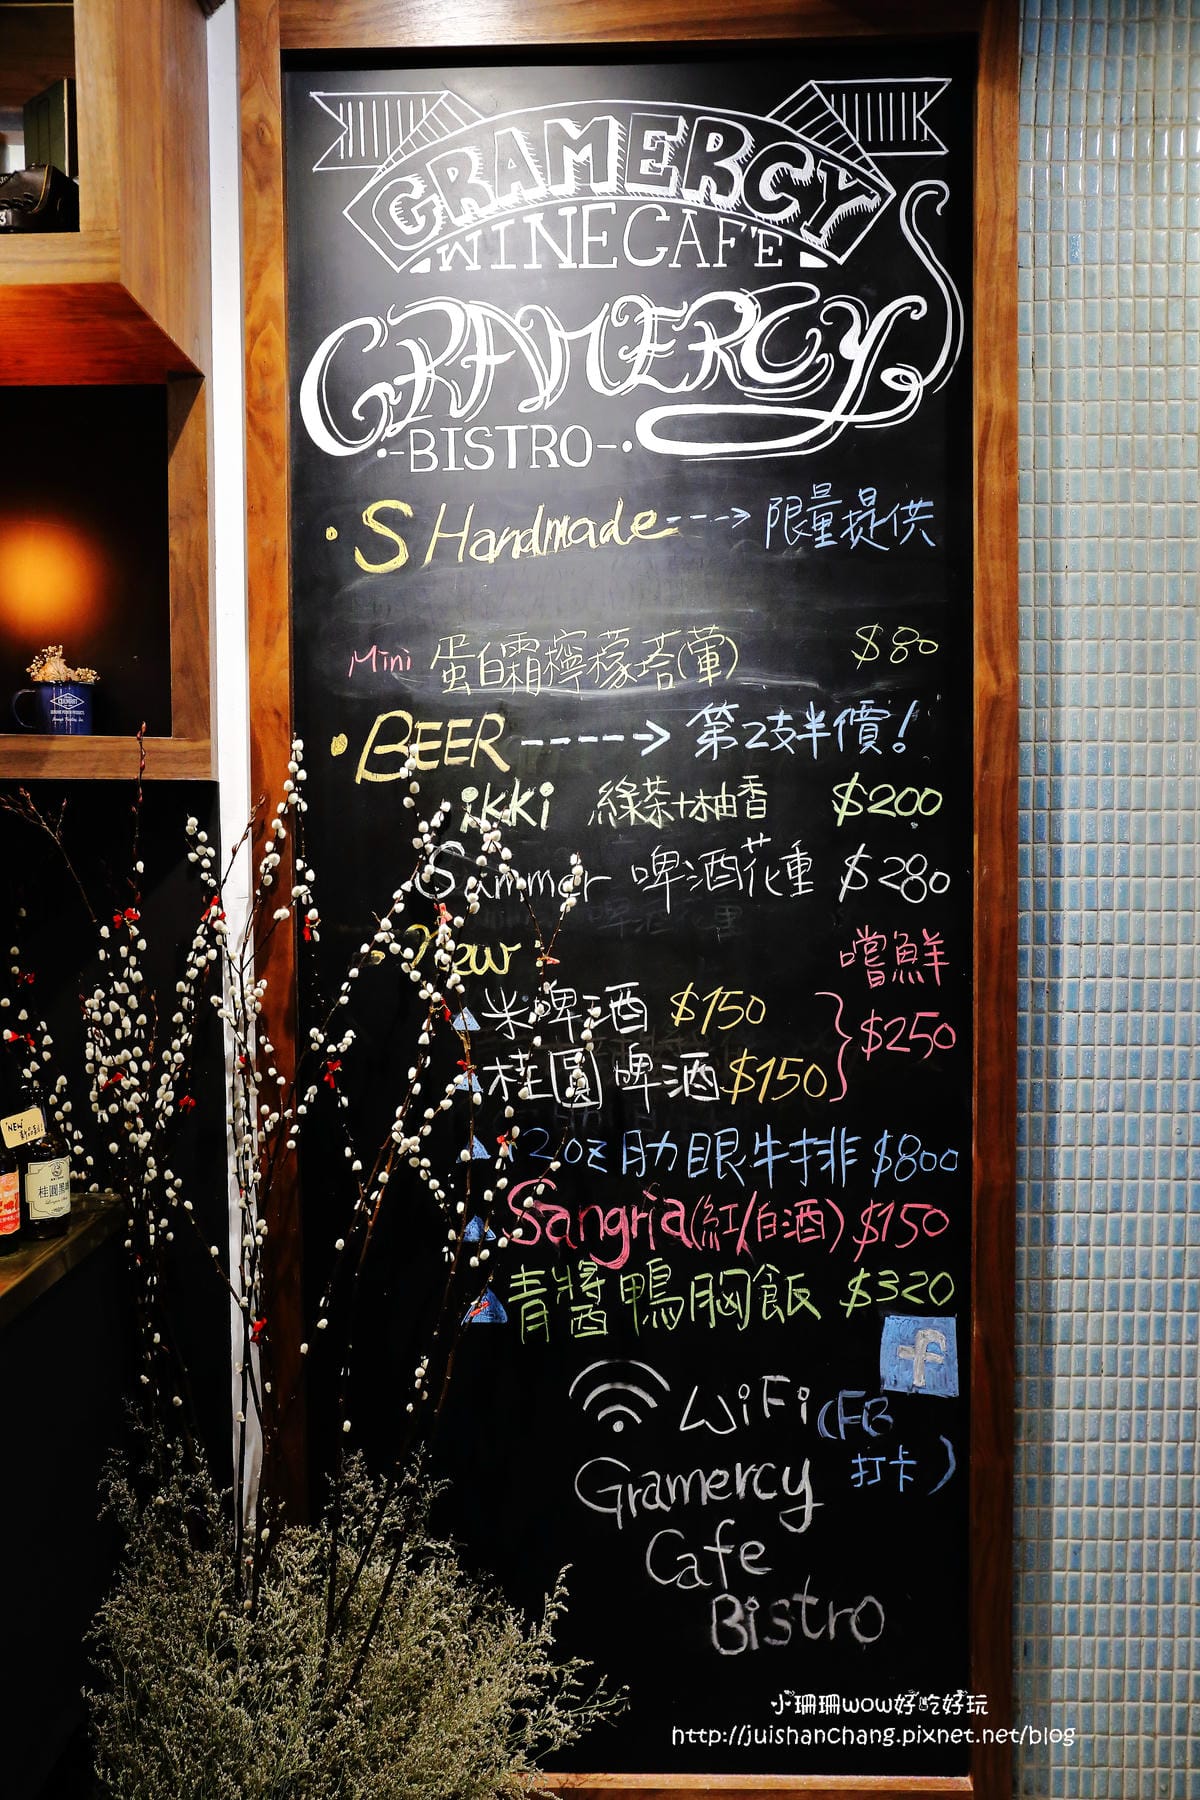 GRAMERCY
WINECAFE
GRAMERCY
-BISTRO-
S Handmade---> 限量提供
Mini 蛋白霜檸檬塔(葷) $80
BEER -----> 第2支半價!
ikki 綠茶+柚香 $200
Summer 啤酒花重 $280
New 嚐鮮
米啤酒 $150
桂圓啤酒 $150 } $250
12oz 肋眼牛排 $800
Sangria(紅/白酒) $150
青醬鴨胸飯 $320
f
WiFi (FB
打卡)
Gramercy
Cafe
Bistro
NEW
桂圓黑
小珊珊wow好吃好玩
http://juishanchang.pixnet.net/blog